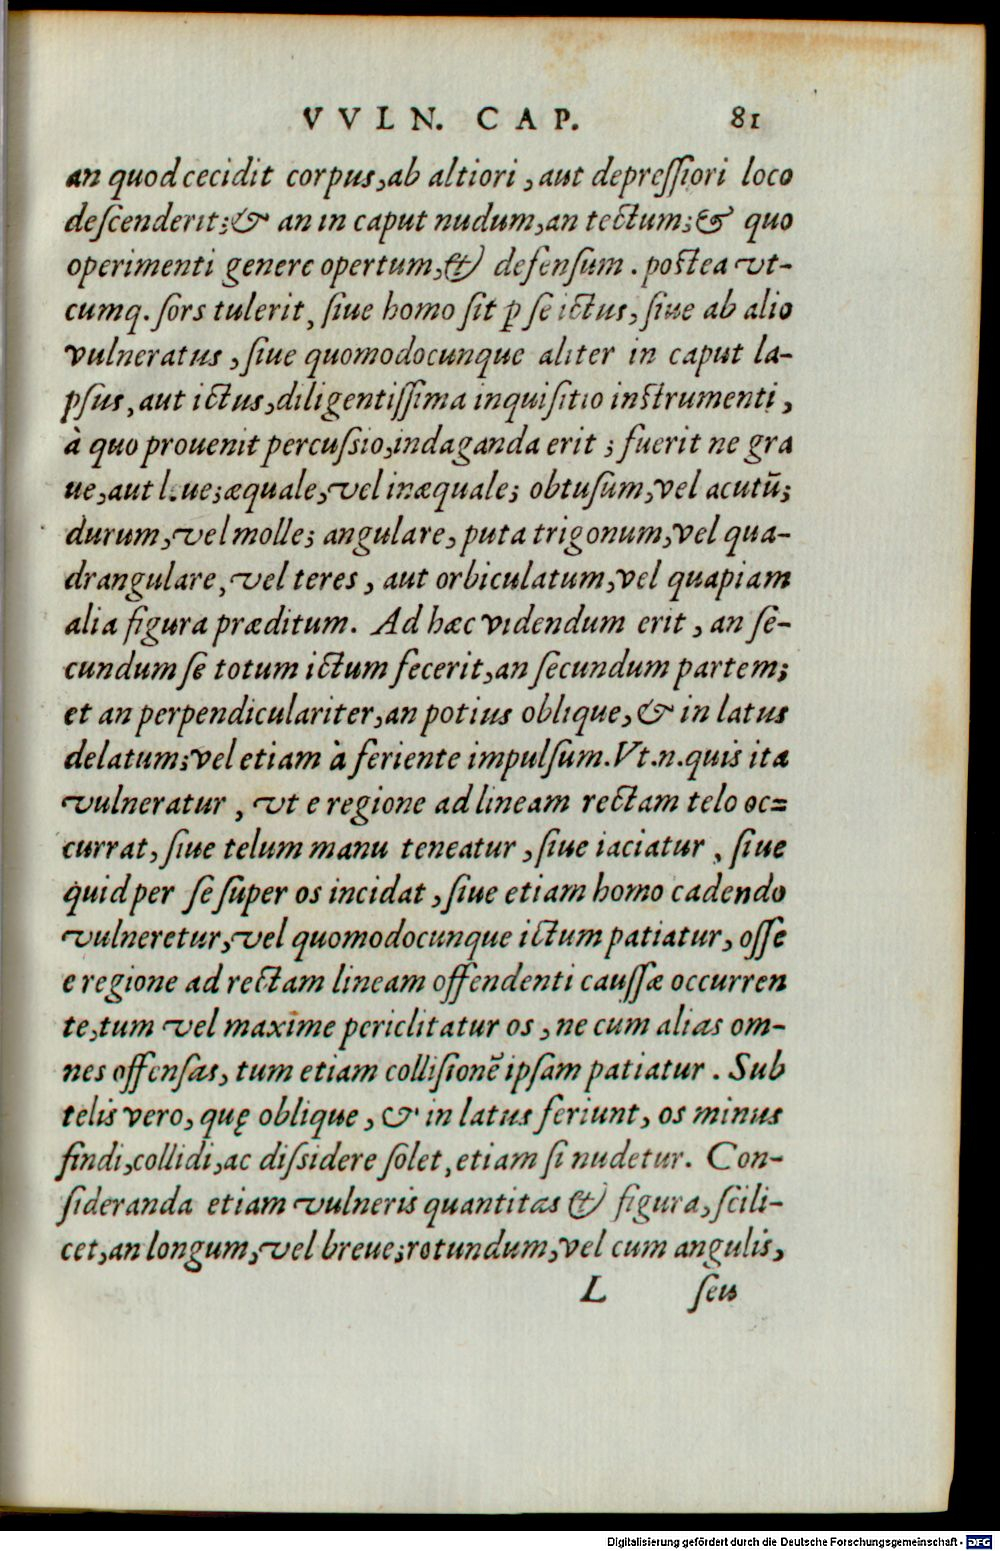 VVLN. CAP. 81
an quod cecidit corpus, ab altiori, aut depreſſiori loco
deſcenderit; & an in caput nudum, an tectum; & quo
operimenti genere opertum, & defenſum. poſtea vt-
cumq. ſors tulerit, ſiue homo ſit ꝑ ſe ictus, ſiue ab alio
vulneratus, ſiue quomodocunque aliter in caput la-
pſus, aut ictus, diligentiſſima inquiſitio inſtrumenti,
à quo prouenit percuſsio, indaganda erit; fuerit ne gra
ue, aut l.ue; æquale, vel inæquale; obtuſum, vel acutũ;
durum, vel molle; angulare, puta trigonum, vel qua-
drangulare, vel teres, aut orbiculatum, vel quapiam
alia figura præditum. Ad hæc videndum erit, an ſe-
cundum ſe totum ictum fecerit, an ſecundum partem;
et an perpendiculariter, an potius oblique, & in latus
delatum; vel etiam à feriente impulſum. Vt.n.quis ita
vulneratur, vt e regione ad lineam rectam telo oc=
currat, ſiue telum manu teneatur, ſiue iaciatur, ſiue
quid per ſe ſuper os incidat, ſiue etiam homo cadendo
vulneretur, vel quomodocunque ictum patiatur, oſſe
e regione ad rectam lineam offendenti cauſſæ occurren
te, tum vel maxime periclitatur os, ne cum alias om-
nes offenſas, tum etiam colliſionẽ ipſam patiatur. Sub
telis vero, quę oblique, & in latus feriunt, os minus
findi, collidi, ac diſsidere ſolet, etiam ſi nudetur. Con-
ſideranda etiam vulneris quantitas & figura, ſcili-
cet, an longum, vel breue; rotundum, vel cum angulis,
L ſeu
Digitalisierung gefördert durch die Deutsche Forschungsgemeinschaft - DFG